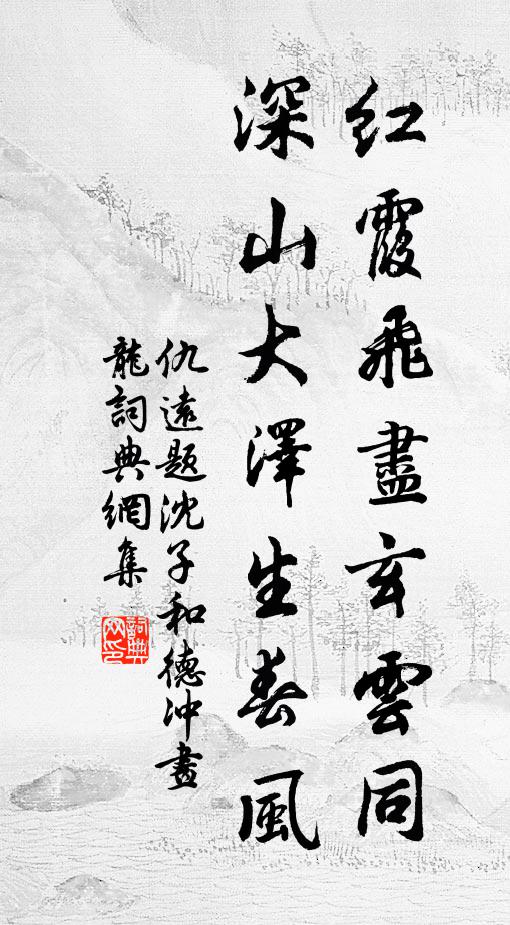 紅霞飛盡玄雲同
深山大澤生春風
仇遠題沈子和德沖畫
龍詞典網集
詞典網印